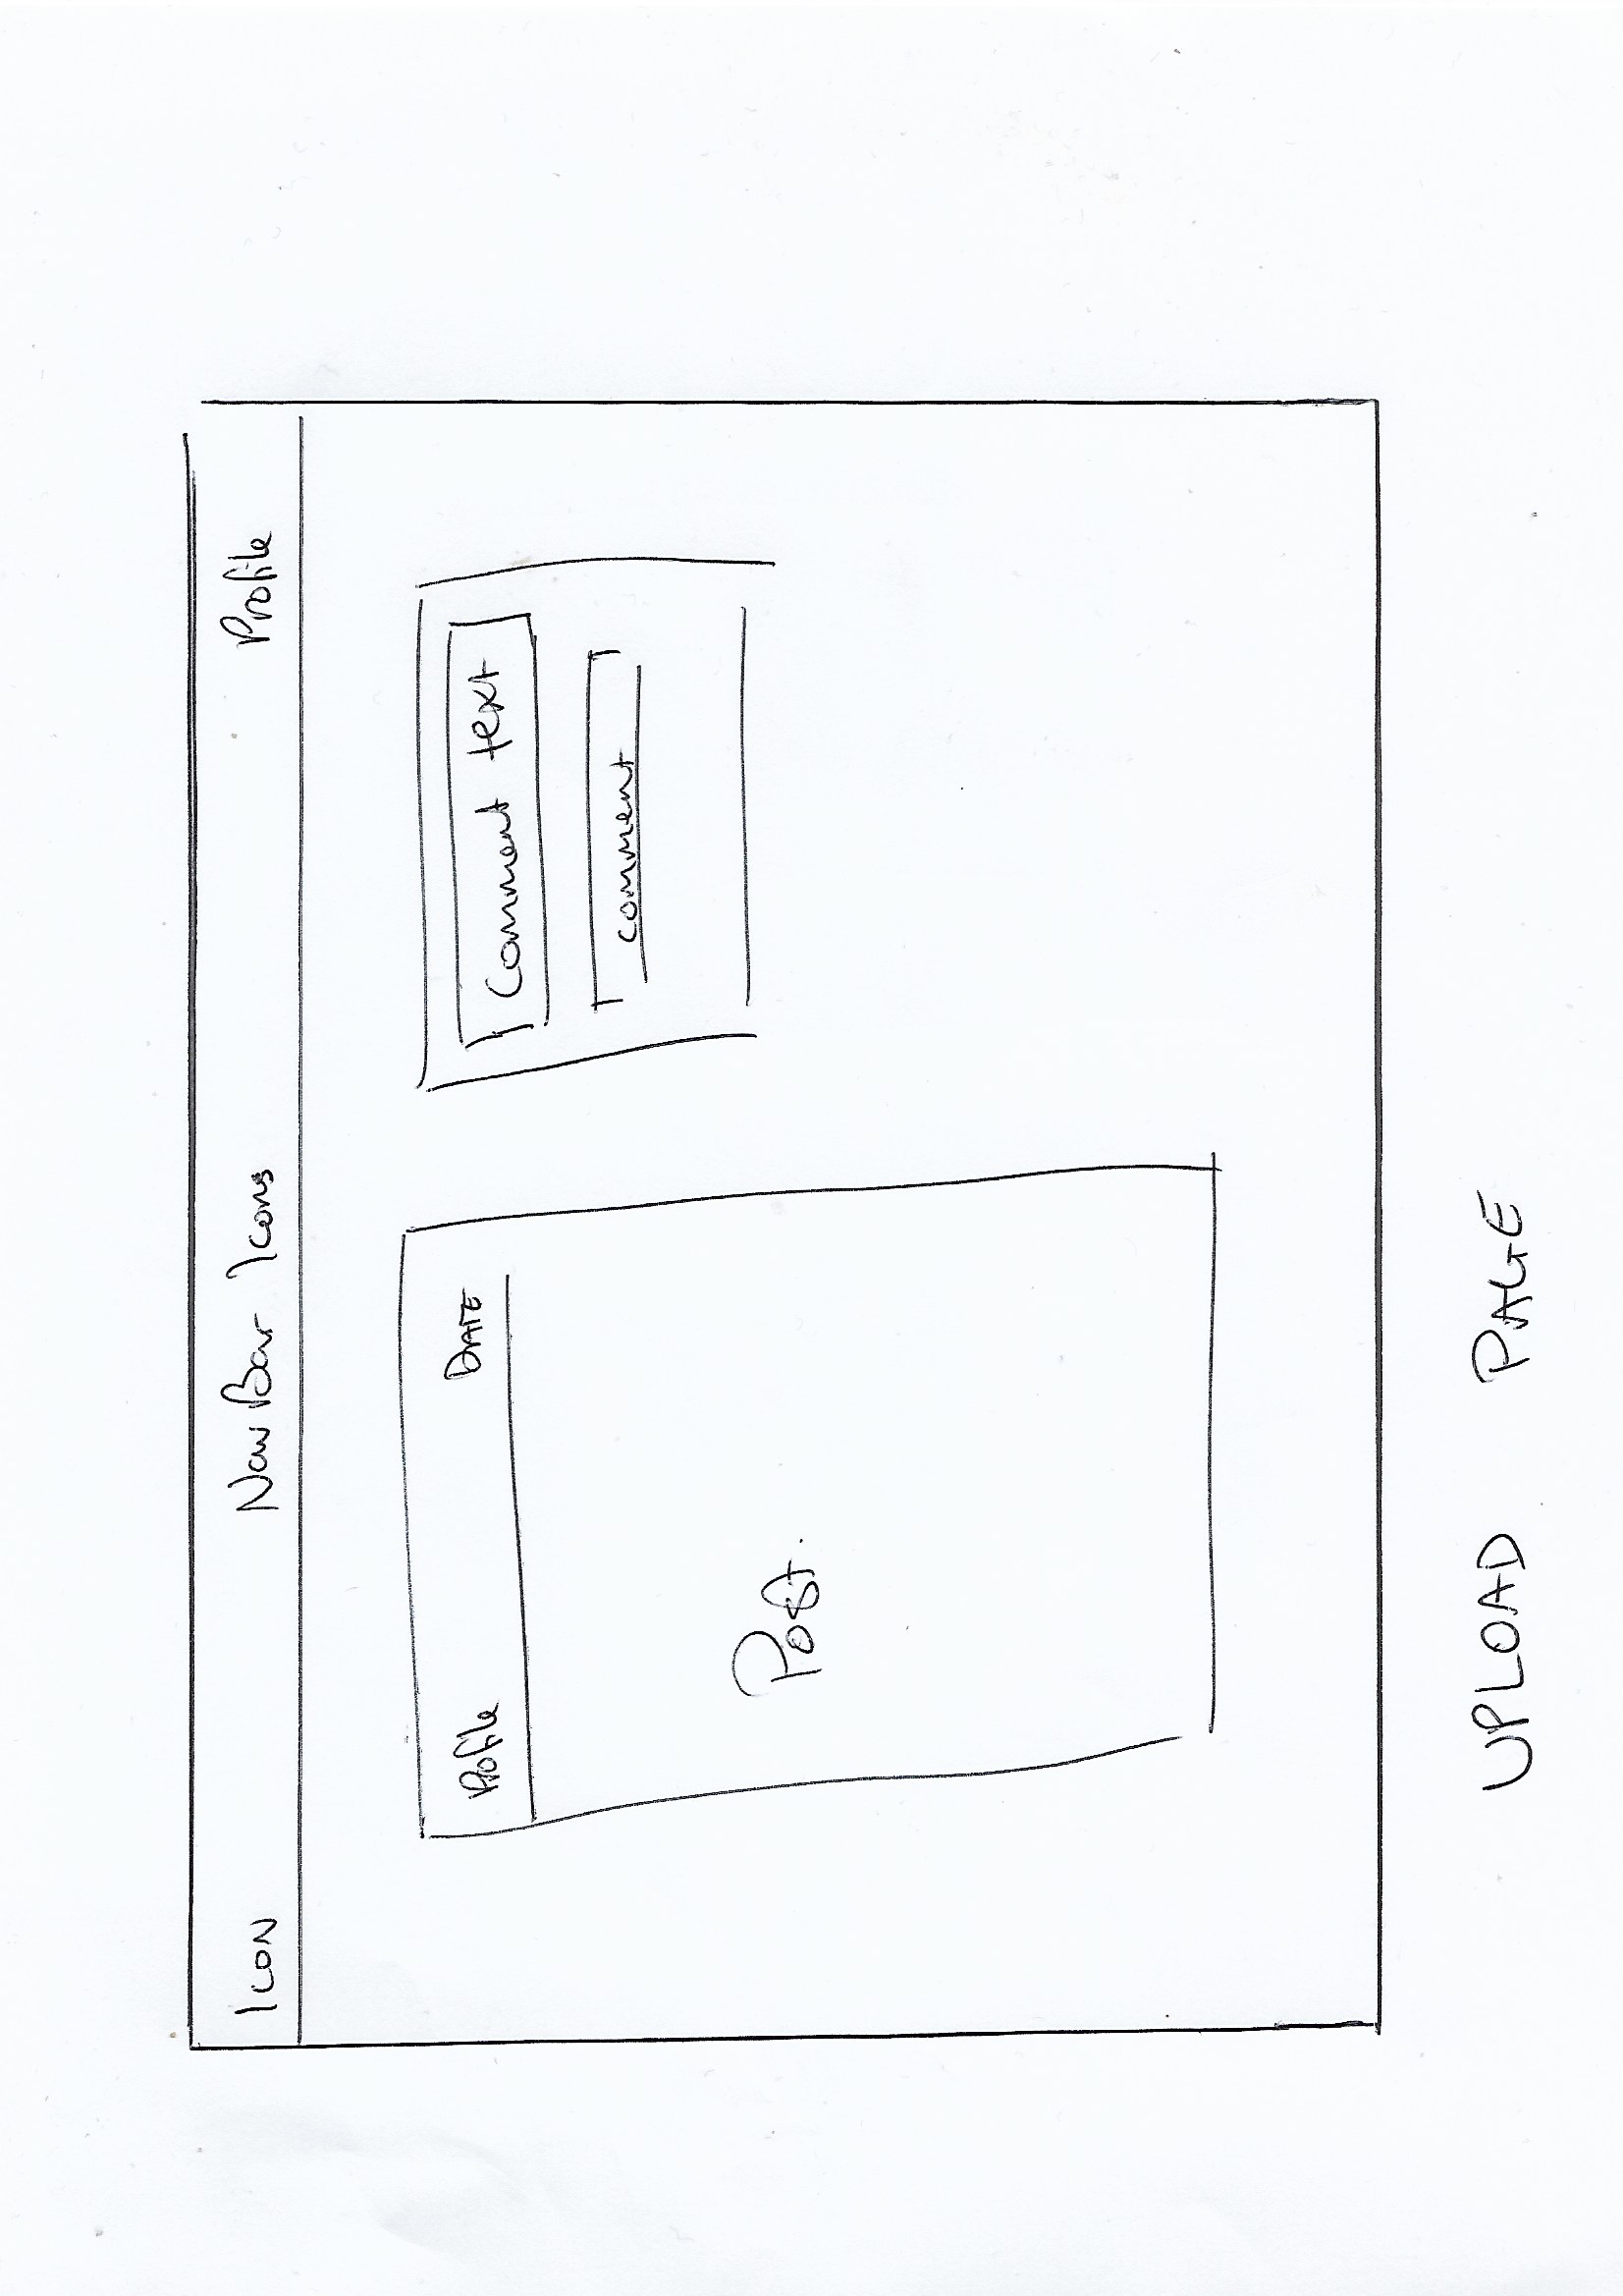 Icon
NavBar Icons
Profile
Profile
DATE
Post.
Comment text
comment
UPLOAD PAGE